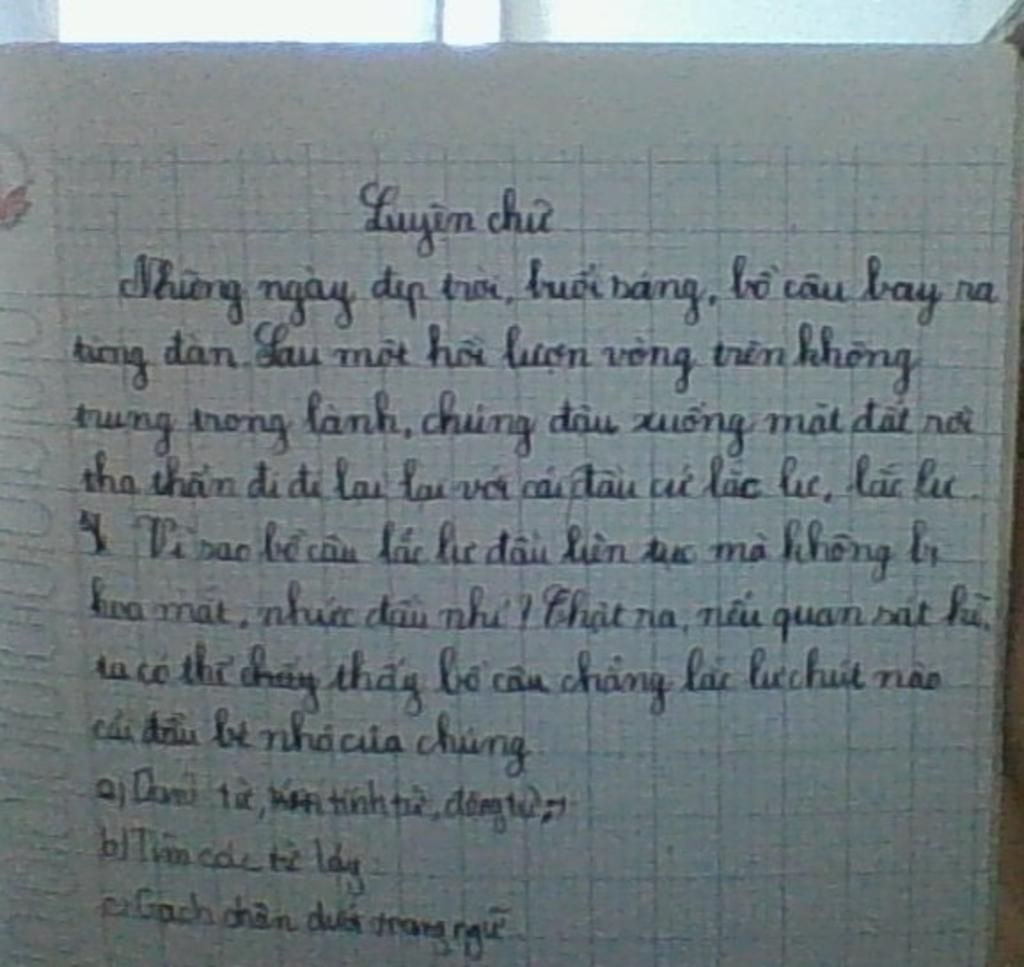 Luyện chữ
Những ngày đẹp trời, buổi sáng, bồ câu bay ra
từng đàn. Sau một hồi lượn vòng trên không
trung trong lành, chúng đậu xuống mặt đất rồi
tha thẩn đi đi lại lại với cái đầu cứ lắc lư, lắc lư.
Vì sao bồ câu lắc lư đầu liên tục mà không bị
hoa mắt, nhức đầu nhỉ? Thật ra, nếu quan sát kĩ,
ta có thể thấy bồ câu chẳng lắc lư chút nào
cái đầu bé nhỏ của chúng
a) Danh từ, tính từ, động từ
b) Tìm các từ láy
c) Gạch chân dưới trạng ngữ